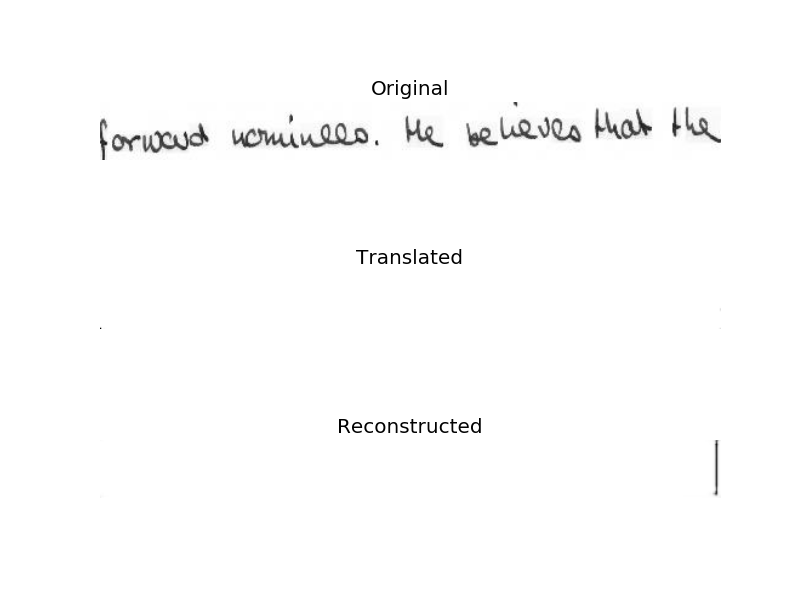 Original
forward nominees. He believes that the
Translated
Reconstructed